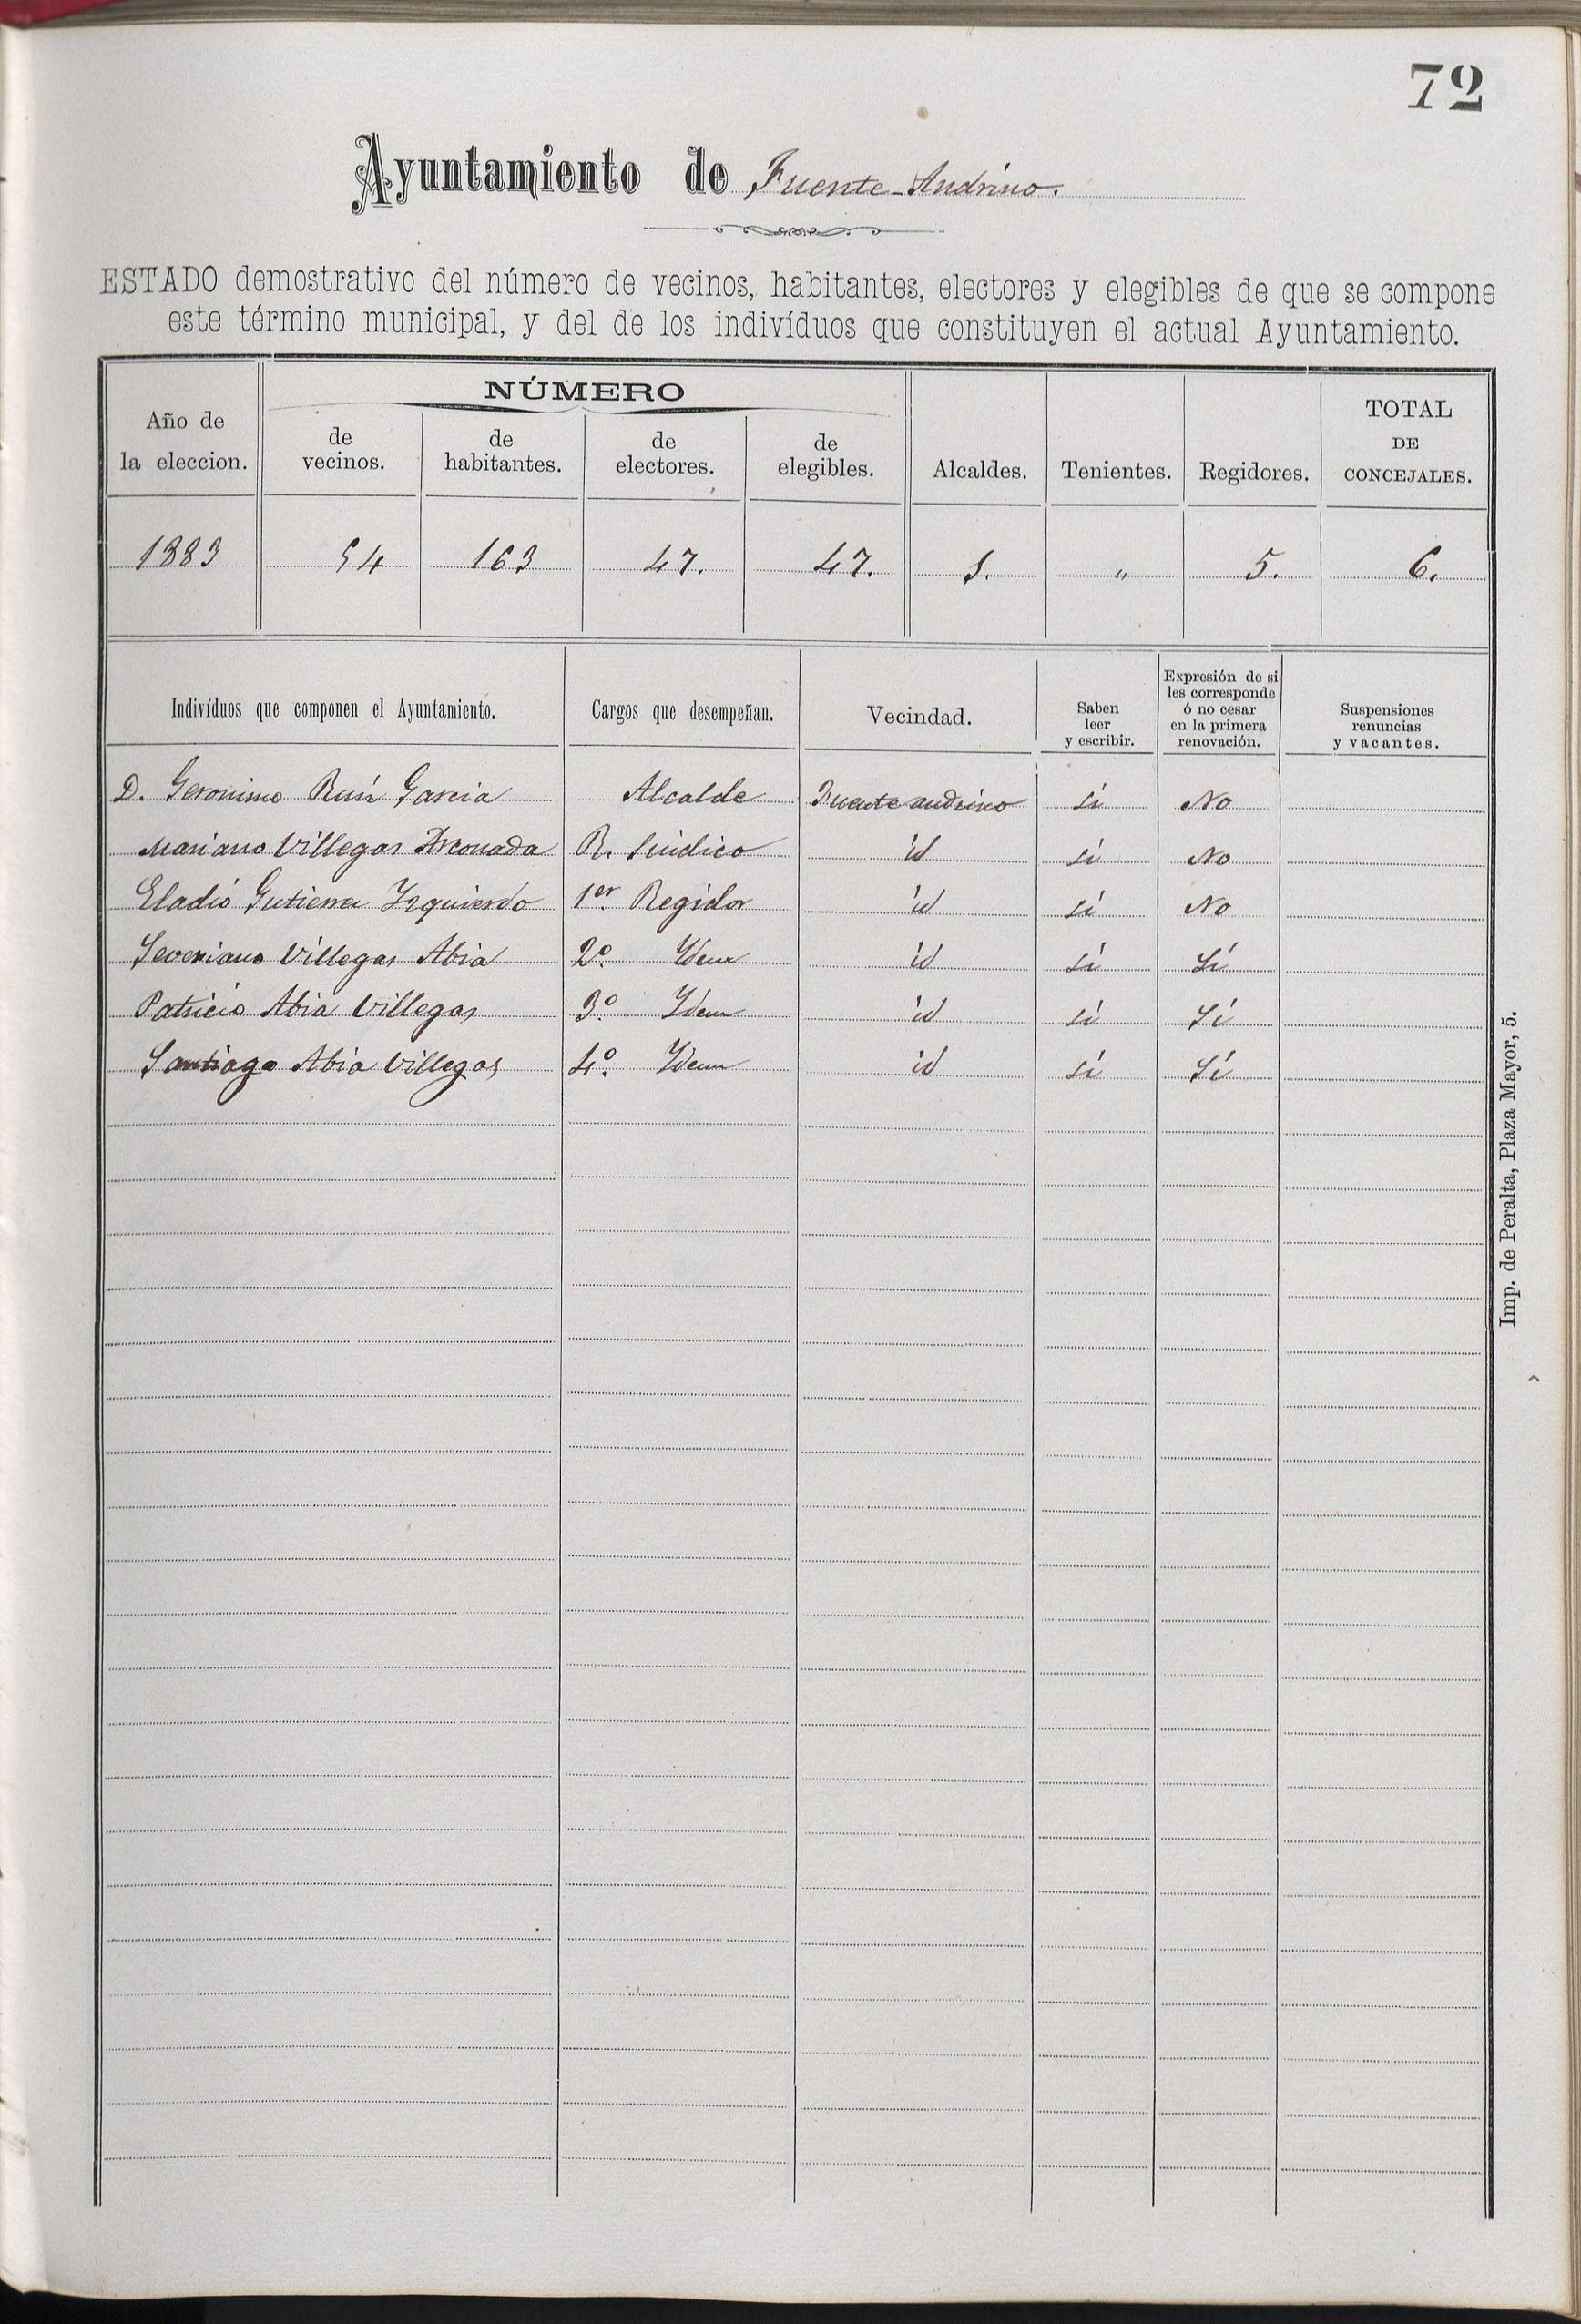 72
Ayuntamiento de Fuente-Andrino.
ESTADO demostrativo del número de vecinos, habitantes, electores y elegibles de que se compone
este término municipal, y del de los indivíduos que constituyen el actual Ayuntamiento.
Año de la eleccion. NÚMERO de vecinos. de habitantes. de electores. de elegibles. Alcaldes. Tenientes. Regidores. TOTAL DE CONCEJALES.
1883 54 163 47. 47. 1. " 5. 6.
Indivíduos que componen el Ayuntamiento. Cargos que desempeñan. Vecindad. Saben leer y escribir. Expresión de si les corresponde ó no cesar en la primera renovación. Suspensiones renuncias y vacantes.
D. Geronimo Ruiz Garcia Alcalde Fuente andrino si No
Mariano Villegas Arconada R. Sindico id si No
Eladio Gutierrez Izquierdo 1er. Regidor id si No
Severiano Villegas Abia 2º. Idem id si Sí
Patricio Abia Villegas 3º. Idem id si Sí
Santiago Abia Villegas 4º. Idem id si Sí
Imp. de Peralta, Plaza Mayor, 5.